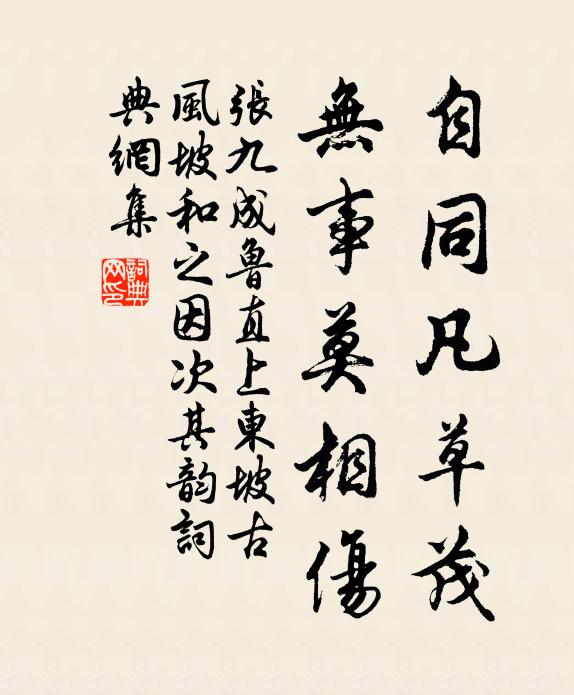 自同凡草茂
無事莫相傷
張九成魯直上東坡古
風坡和之因次其韵詞
典網集
詞典網印